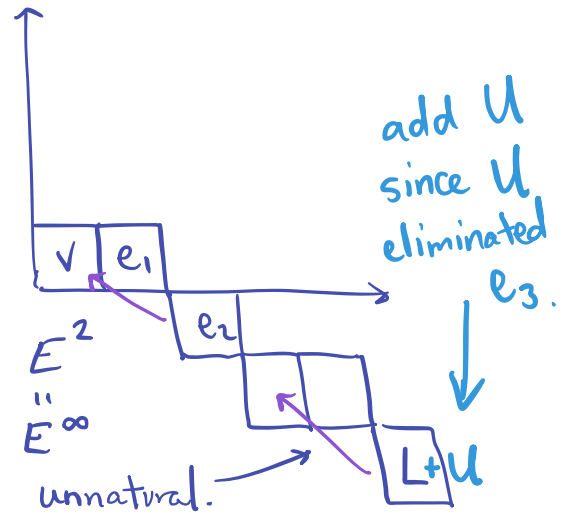 add U
since U
eliminated
e₃.
V e₁
e₂
E²
=
E^∞
L+U
unnatural.